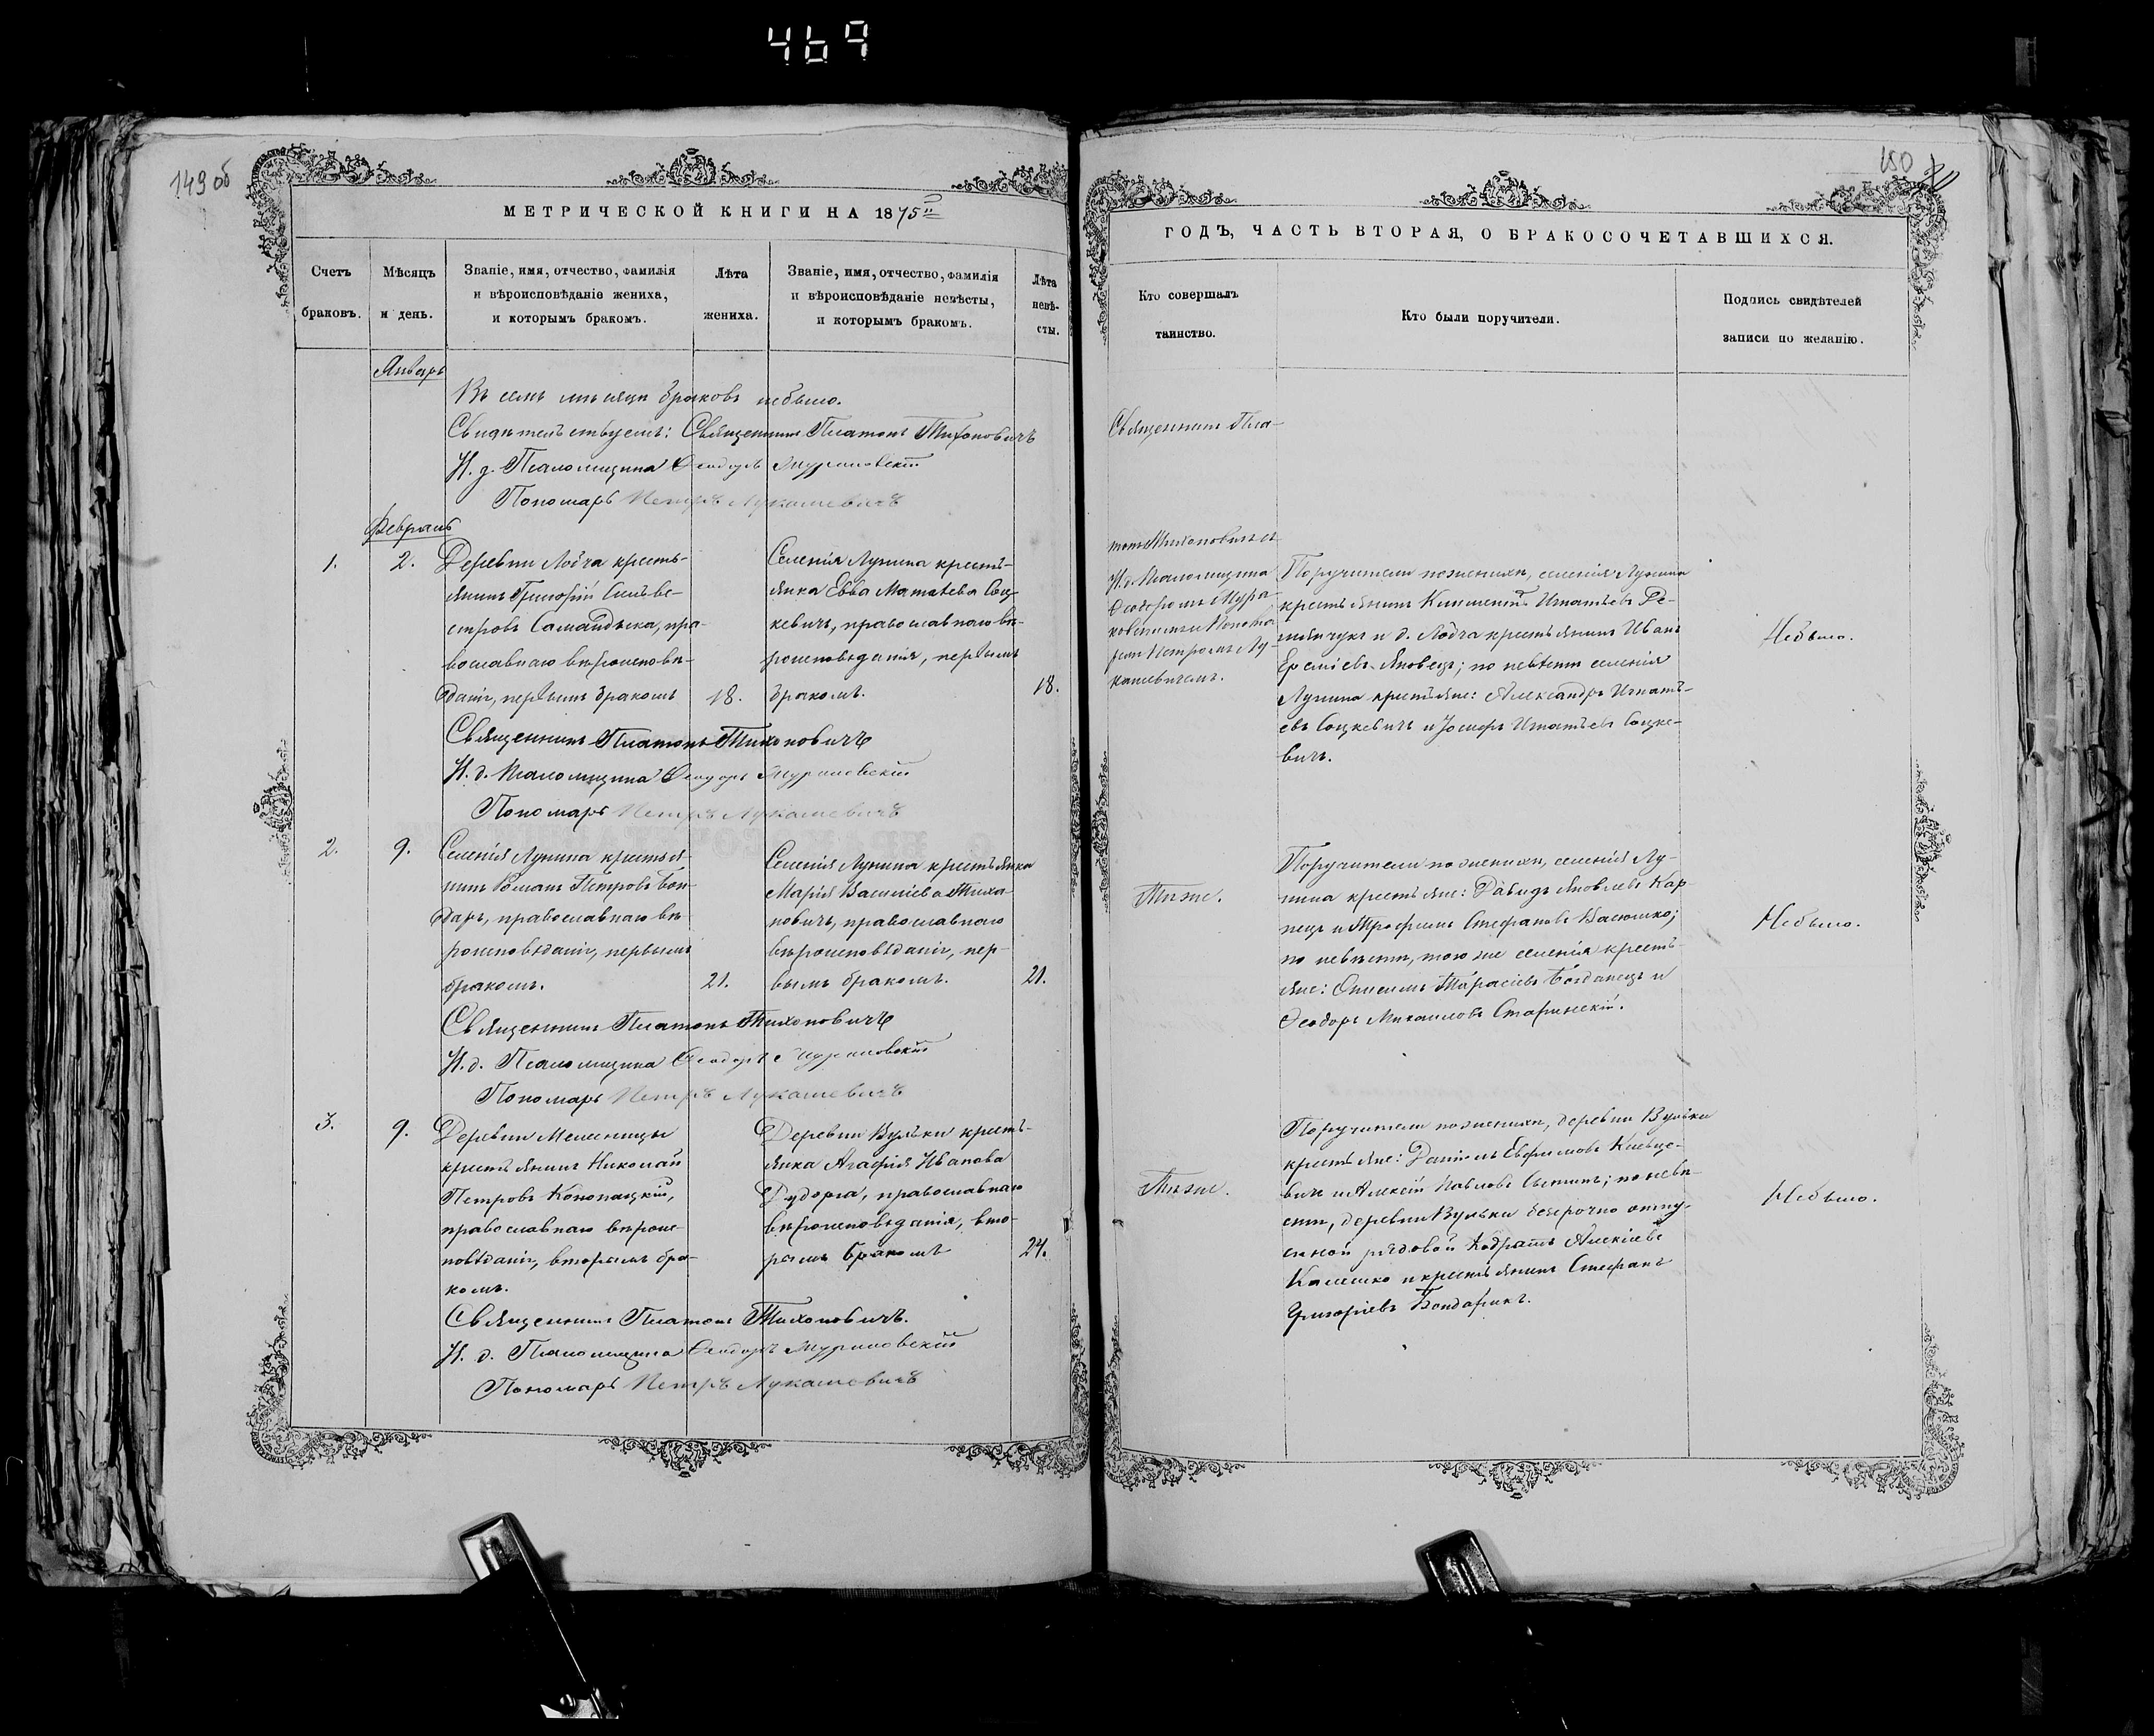 469
149 об
МЕТРИЧЕСКОЙ КНИГИ НА 1875й
Счетъ браковъ.
Мѣсяцъ и день.
Званіе, имя, отчество, фамилія
и вѣроисповѣданіе жениха,
и которымъ бракомъ.
Лѣта жениха.
Званіе, имя, отчество, фамилія
и вѣроисповѣданіе невѣсты,
и которымъ бракомъ.
Лѣта невѣ-
сты.
Январь
Въ семъ мѣсяцѣ браковъ небыло.
Свидѣтельствуемъ: Священникъ Платонъ Тихоновичъ
И. д. Псаломщика Ѳеодоръ
Пономарь Петръ Лукашевичъ
Февраль
1.
2.
Деревни Лобча кресть-
янинъ Григорій Сильве-
стровъ пра-
вославнаго вѣроисповѣ-
данія, первымъ бракомъ
18.
Селенія Лунина кресть-
янка Евва Матвѣева Соц-
кевичъ, православнаго вѣ-
роисповѣданія, первымъ
бракомъ.
18.
Священникъ Платонъ Тихоновичъ
И. д. Псаломщика Ѳеодоръ
Пономарь Петръ Лукашевичъ
2.
9.
Селенія Лунина крестья-
нинъ Романъ Петровъ Бон-
даръ, православнаго вѣ-
роисповѣданія, первымъ
бракомъ.
21.
Селенія Лунина крестьянка
Марія Василіева Тиха-
новичъ, православнаго
вѣроисповѣданія, пер-
вымъ бракомъ.
21.
Священникъ Платонъ Тихоновичъ
И. д. Псаломщика Ѳеодоръ
Пономарь Петръ Лукашевичъ
3.
9.
Деревни Мелесницы
крестьянинъ Николай
Петровъ Конопацкій,
православнаго вѣроис-
повѣданія, вторымъ бра-
комъ.
Деревни Вульки кресть-
янка Агафія Иванова
православнаго
вѣроисповѣданія, вто-
рымъ бракомъ
24.
Священникъ Платонъ Тихоновичъ.
И. д. Псаломщика Ѳеодоръ
Пономарь Петръ Лукашевичъ
150
ГОДЪ, ЧАСТЬ ВТОРАЯ, О БРАКОСОЧЕТАВШИХСЯ.
Кто совершалъ таинство.
Кто были поручители.
Подпись свидѣтелей
записи по желанію.
Священникъ Пла-
тонъ Тихоновичъ съ
И. д. Псаломщика
Петромъ Лу-
кашевичемъ.
Поручители по женихѣ, селенія Лунина
крестьянинъ Климентъ Игнатьевъ Ре-
и д. Лобча крестьянинъ Иванъ
Яковецъ; по невѣстѣ селенія
Лунина крестьяне: Александръ Игнать-
евъ Соцкевичъ и Іосифъ Игнатьевъ Соцке-
вичъ.
Небыло.
Тѣже.
Поручители по женихѣ, селенія Лу-
нина крестьяне: Давидъ Яковлевъ Кар-
пецъ и Трофимъ Стефановъ
по невѣстѣ, того же селенія кресть-
яне: Онисимъ Тарасіевъ Богданецъ и
Ѳеодоръ Михаиловъ Старинскій.
Небыло.
Тѣже.
Поручители по женихѣ, деревни Вульки
крестьяне: Даніилъ Евфимовъ
и Алексій Павловъ по невѣ-
стѣ, деревни Вульки безсрочно отпу-
скной рядовой Кодратъ Алексіевъ
и крестьянинъ Стефанъ
Григоріевъ Бондарикъ.
Небыло.